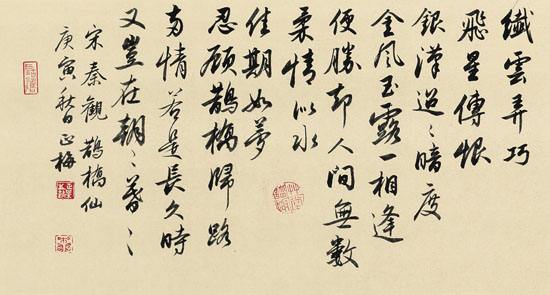 纖雲弄巧
飛星傳恨
銀漢迢〻暗度
金風玉露一相逢
便勝却人間無數
柔情似水
佳期如夢
忍顧鵲橋歸路
两情若是長久時
又豈在朝〻暮〻
宋秦觀鵲橋仙
庚寅秋日正梅